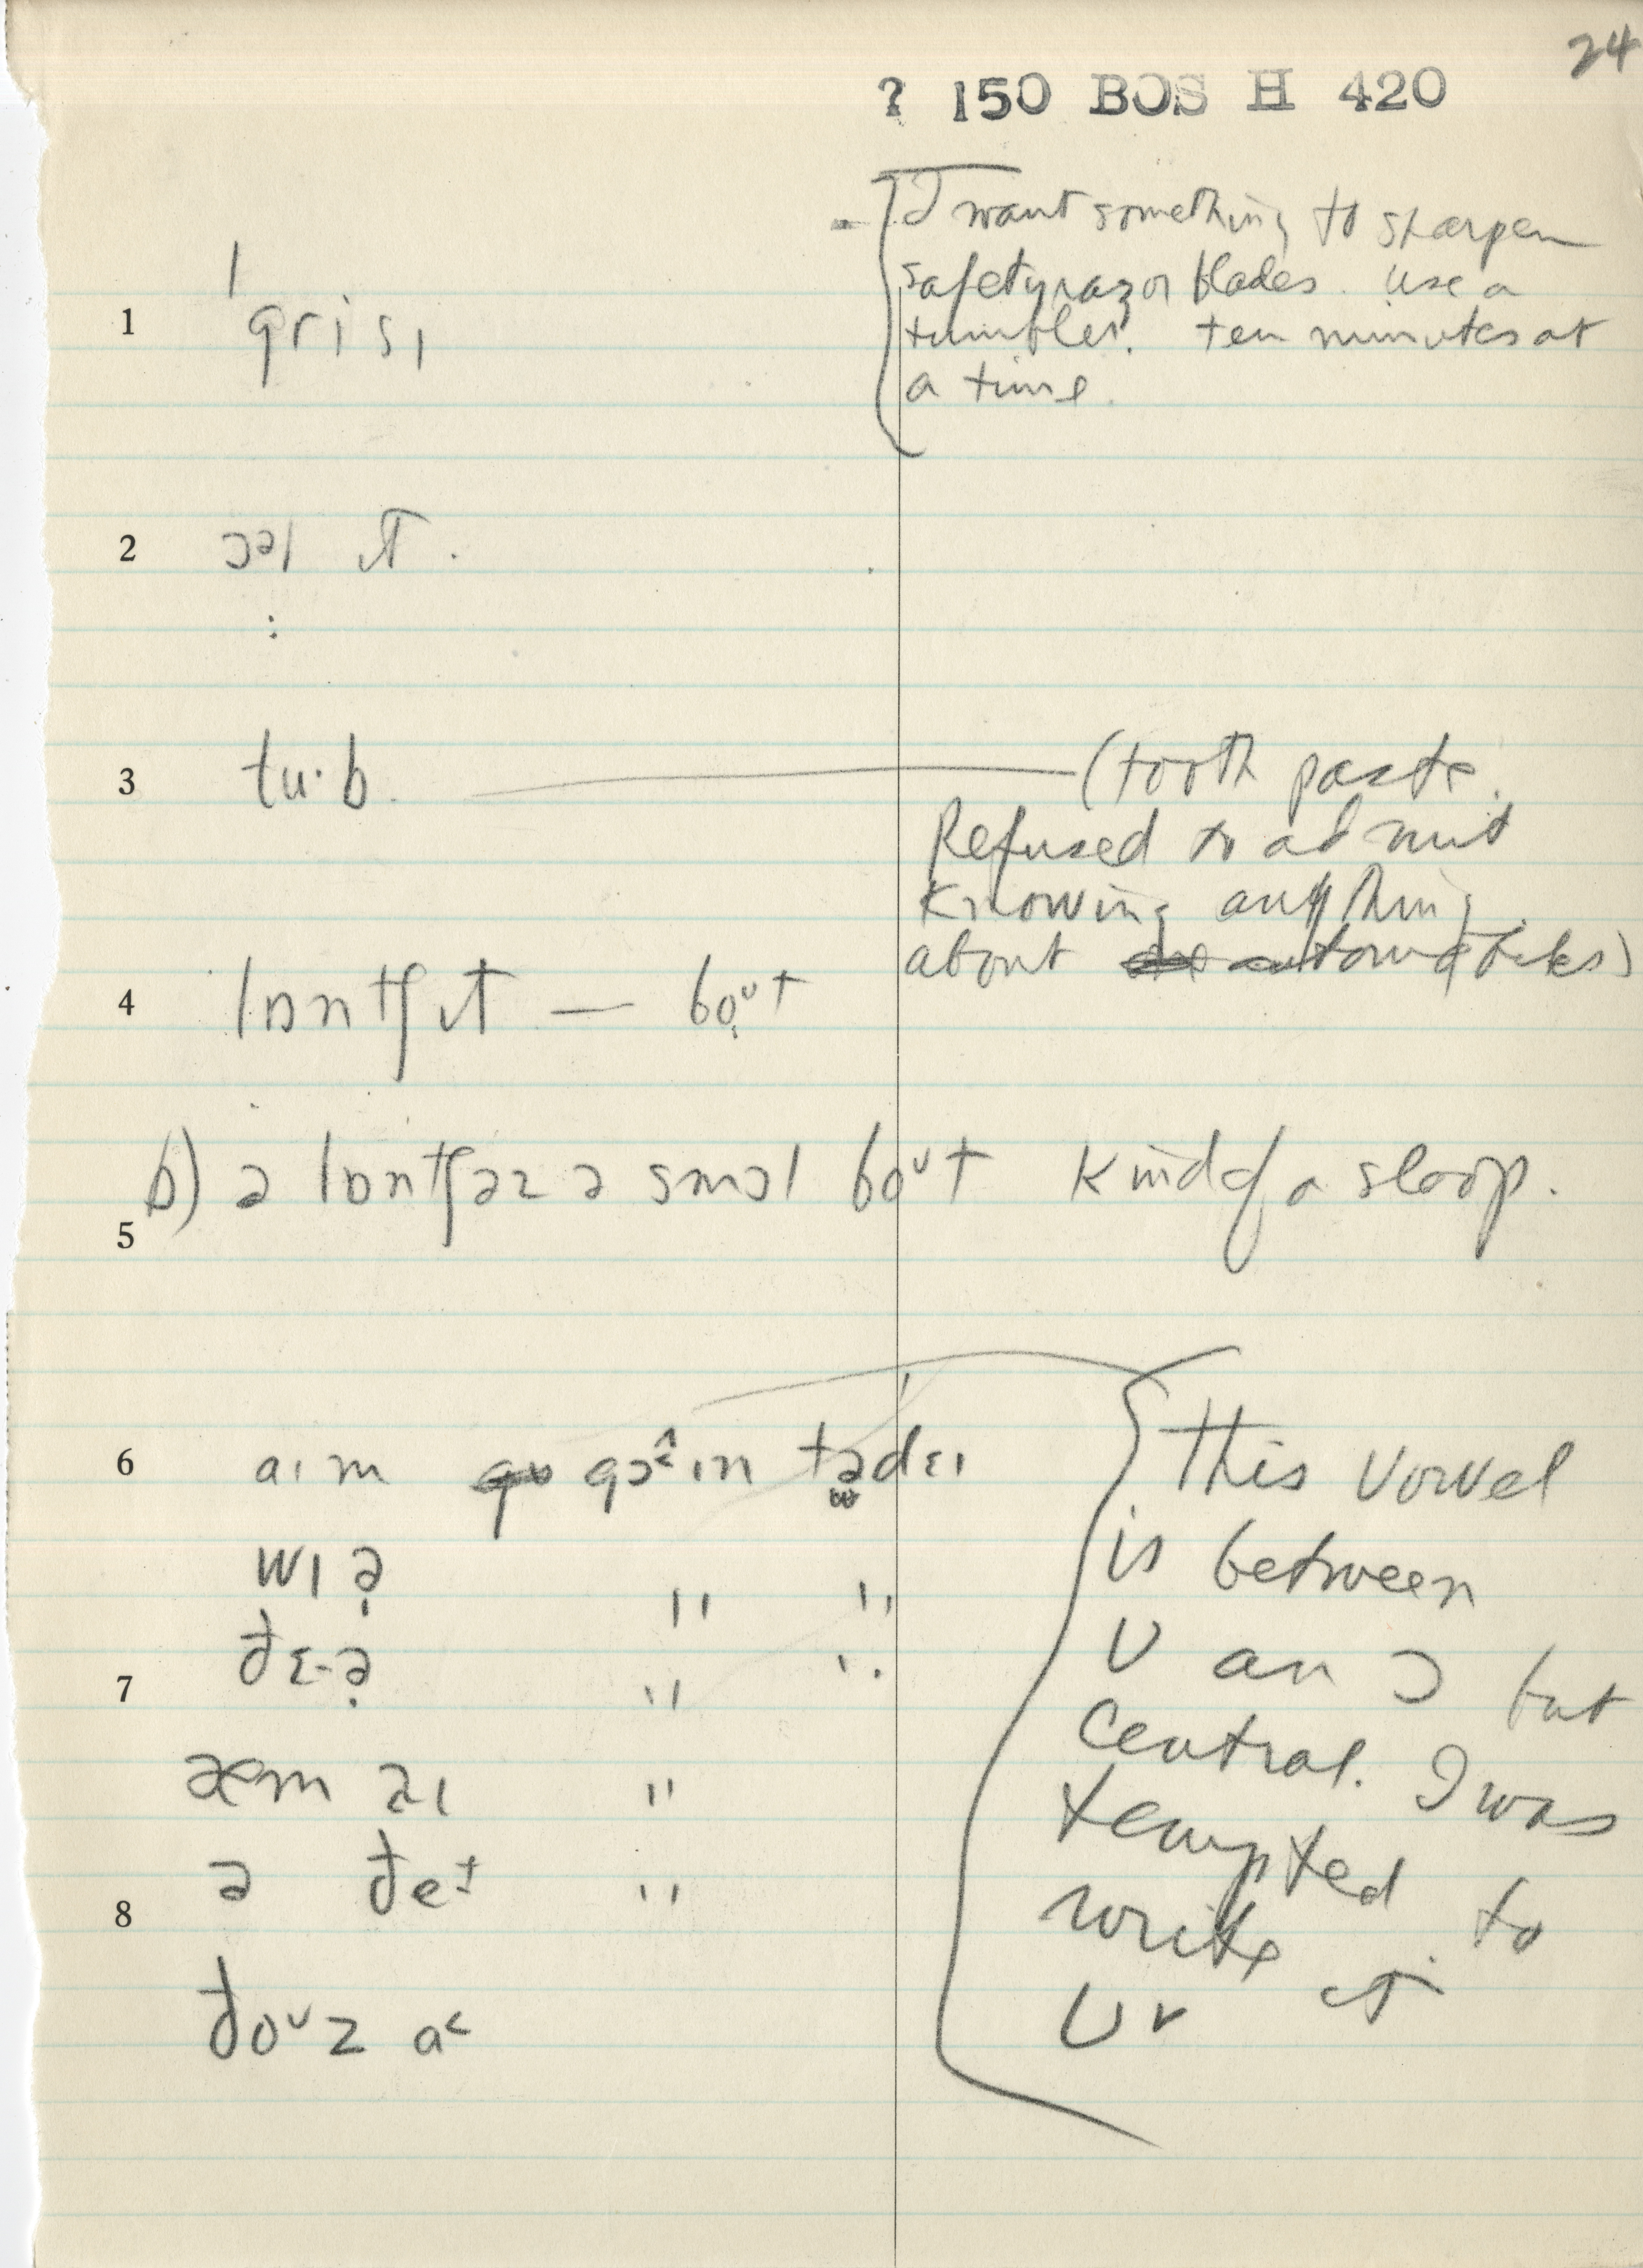 24
? 150 BOS H 420
I want something to sharpen
safety razor blades. use a
tumbler. ten minutes at
a time.
1 ˈgrisɪ
2 ɔəl ɪt.
:
3 tu·b. (tooth paste.
Refused to admit
Knowing anything
about
4 lɒntʃ ɪt — boᴜt
b) ə lɒntʃ əz ə smɔl boᴜt Kind of a sloop.
5
6 aɪm gɔ^ɪn tədɛɪ
wɪə " "
7 ðɛ-ə " "
æm aɪ "
ə ðeɪ "
8
ðoᴜz a<
This vowel
is between
U an ɔ but
Central. I was
tempted to
write it
U